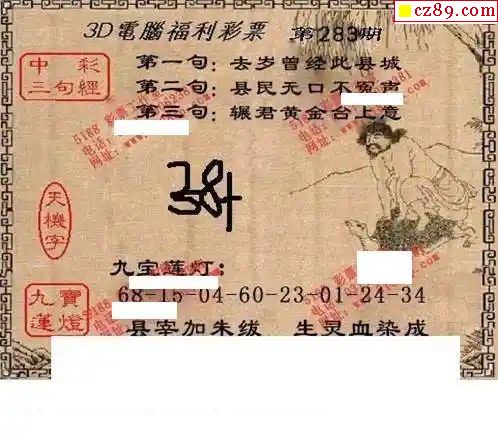 cz89.com
3D電腦福利彩票 第283期
中彩
三句經
第一句:去岁曾经此县城
第二句:县民无口不冤声
第三句:辗君黄金台上意
天機字
九宝莲灯:
九寶蓮燈
68-15-04-60-23-01-24-34
县宰加朱绂 生灵血染成